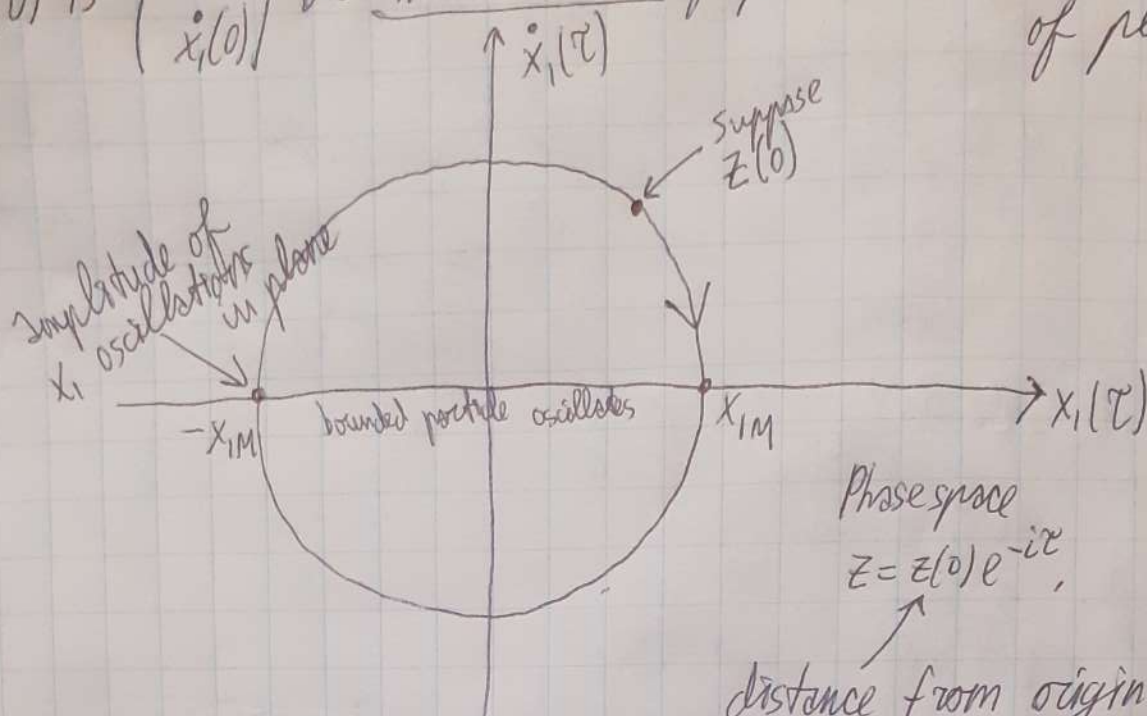 ẋ₁(0)
of pe
ẋ₁(τ)
suppose
Z(0)
amplitude of
x₁ oscillations
in plane
-x₁M
bounded particle oscillates
x₁M
x₁(τ)
Phase space
z = z(0) e^{-iτ},
distance from origin